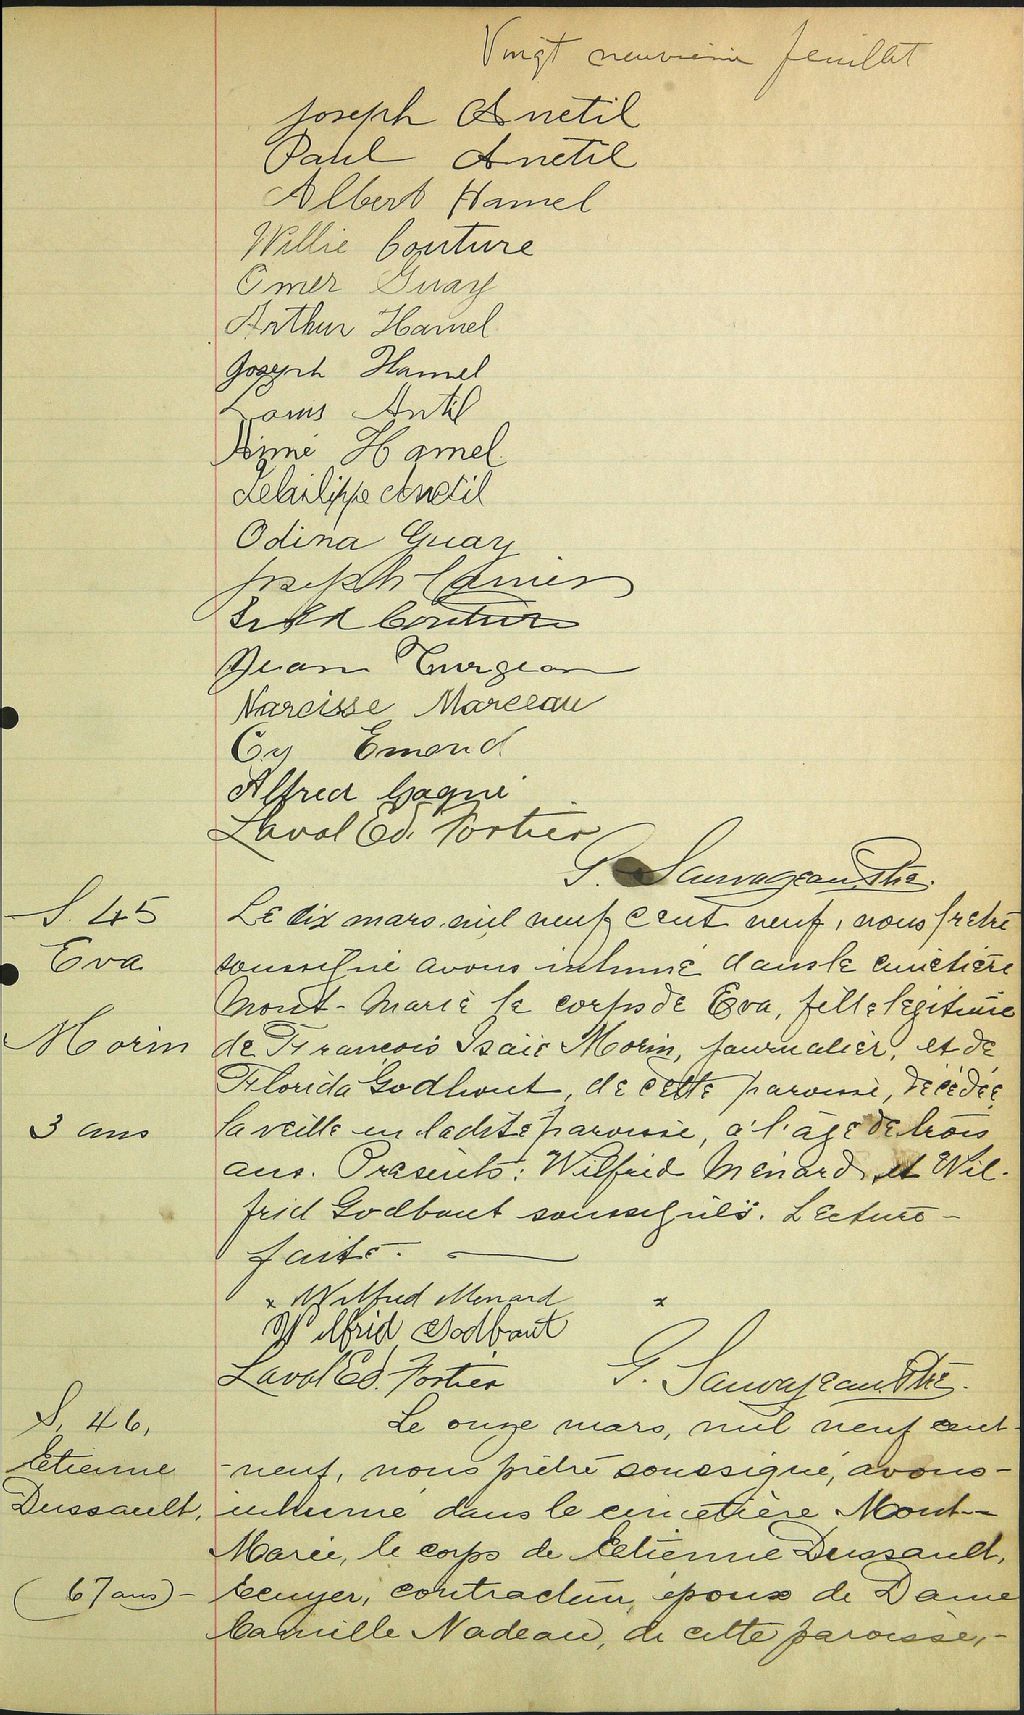 Vingt neuvième feuillet
Joseph Anctil
Paul Anctil
Albert Hamel
Willie Couture
Omer Guay
Arthur Hamel
Joseph Hamel
Louis Antil
Aimé Hamel
Anctil
Odina Guay
Joseph
Couture
Jean Turgeon
Narcisse Marceau
Cy Emond
Alfred Gagné
Laval Ed. Fortier
G. Sauvageau, Ptre.
S. 45
Eva
Morin
3 ans
Le dix mars, mil neuf cent neuf, nous prêtre
soussigné avons inhumé dans le cimetière
Mont-Marie le corps de Eva, fille légitime
de François Isaïe Morin, journalier, et de
Florida Godbout, de cette paroisse, décédée
la veille en ladite paroisse, à l'âge de trois
ans. Présents: Wilfrid Ménard et Wil-
frid Godbout soussignés. Lecture
faite.
x Wilfred Menard x
Wilfrid Godbout
Laval Ed. Fortier G. Sauvageau Ptre.
S. 46,
Etienne
Dussault,
(67 ans)-
Le onze mars, mil neuf cent-
-neuf, nous prêtre soussigné, avons-
inhumé dans le cimetière Mont-
Marie, le corps de Etienne Dussault,
Ecuyer, contracteur, époux de Dame
Camille Nadeau, de cette paroisse,-